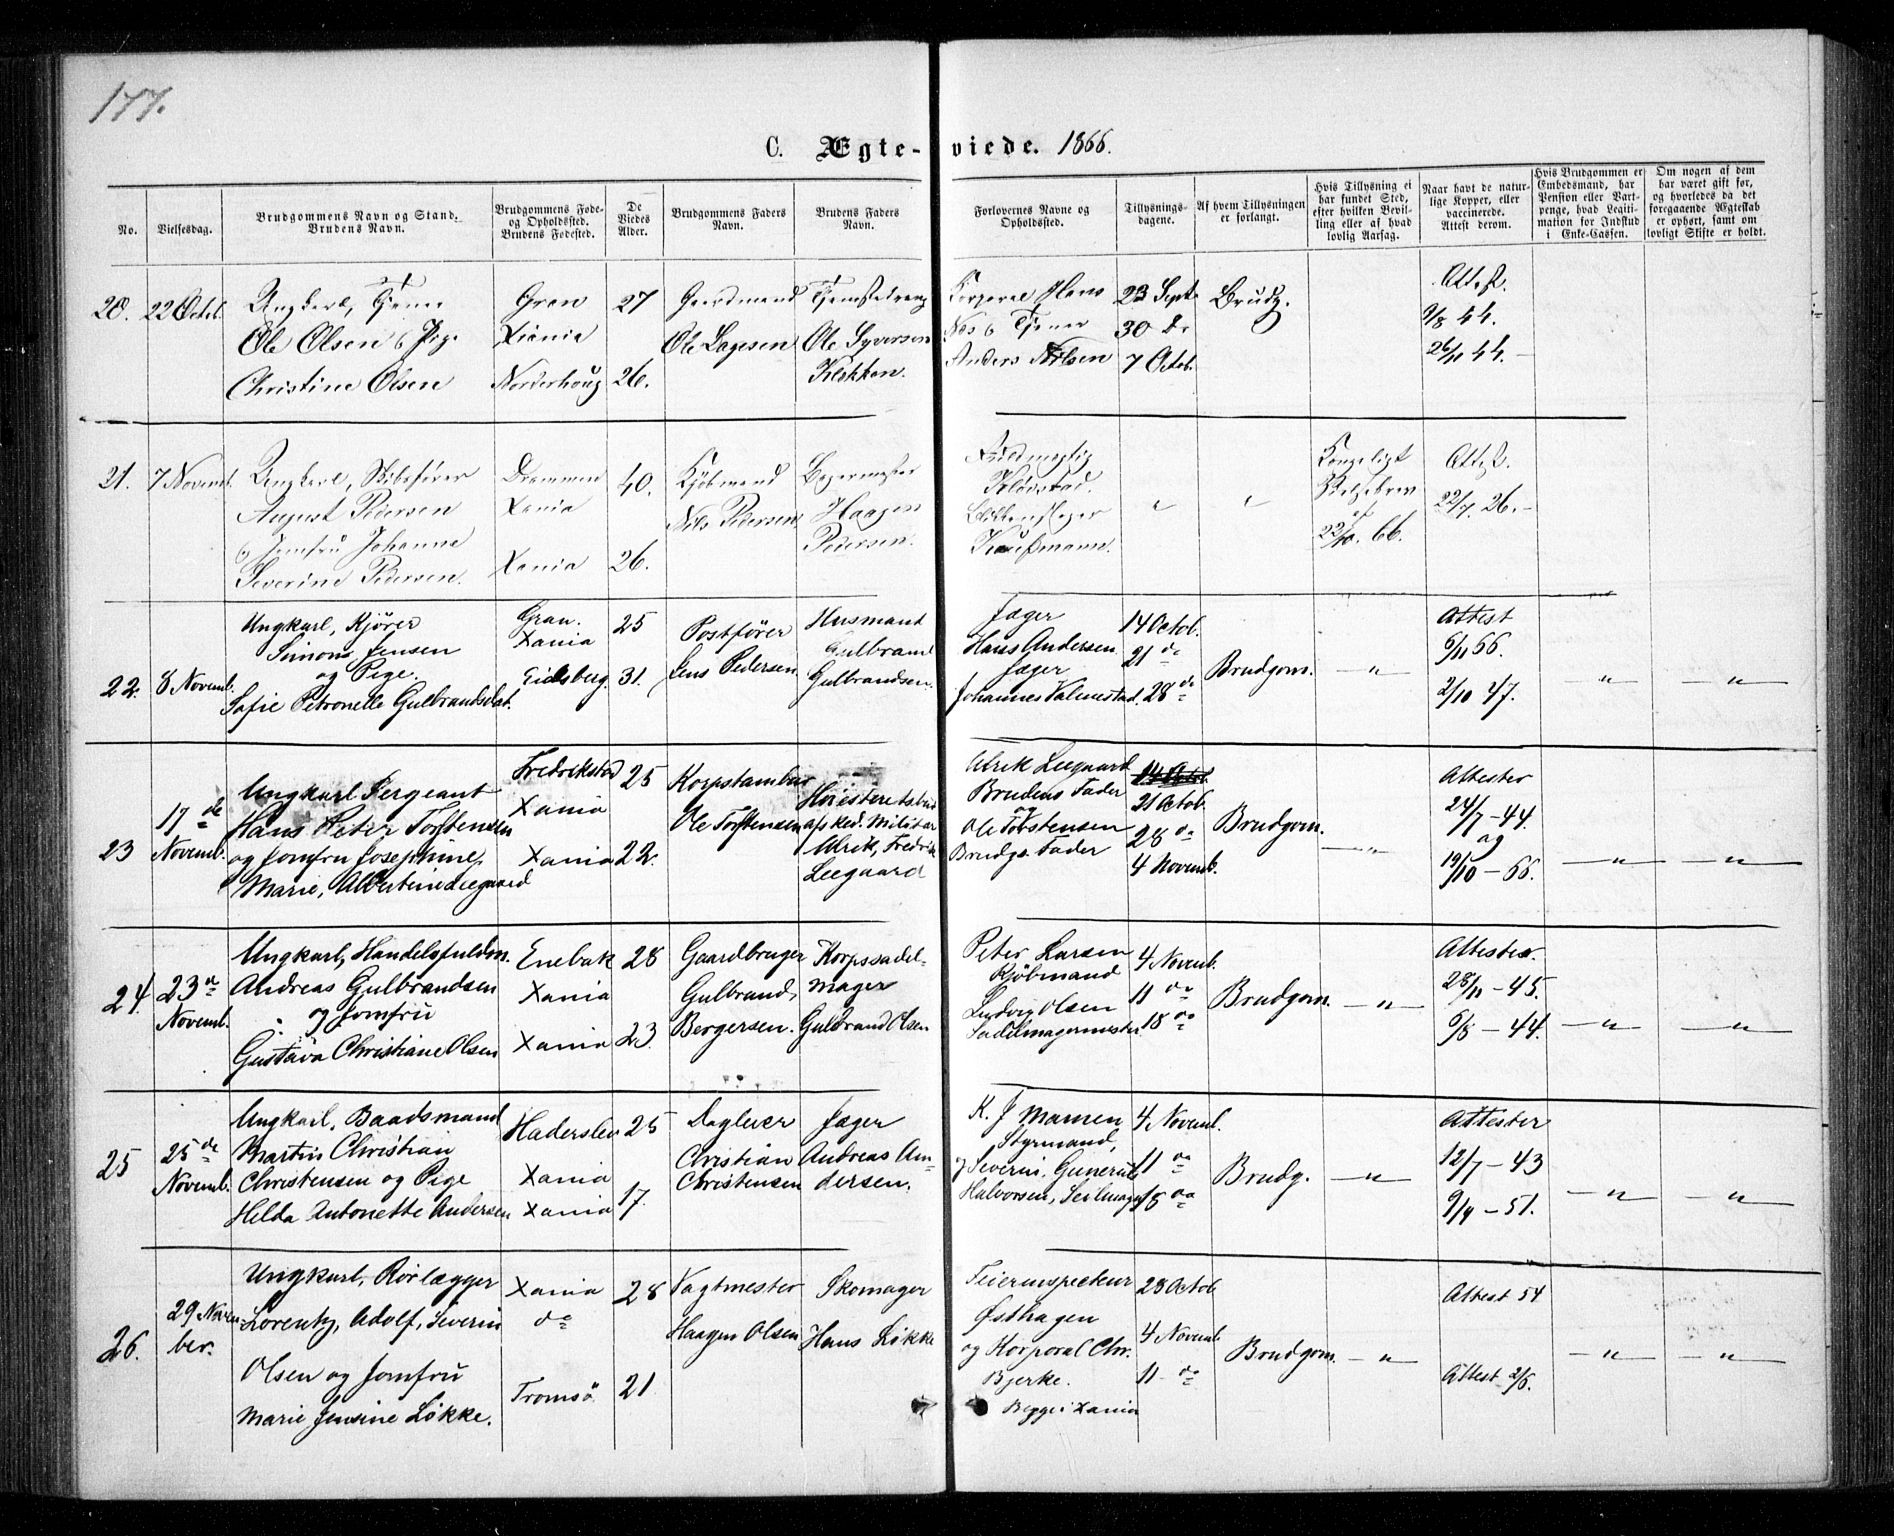 177.
C. Ægte-viede. 1866.
No.
Vielsesdag.
Brudgommens Navn og Stand.
Brudens Navn.
Brudgommens Føde-
og Opholdssted.
Brudens Fødested.
De
Viedes
Alder.
Brudgommens Faders
Navn.
Brudens Faders
Navn.
Forlovernes Navne og
Opholdssted.
Tillysnings-
dagene.
Af hvem Tillysningen
er forlangt.
Hvis Tillysning ei
har fundet Sted,
efter hvilken Bevil-
ling eller af hvad
lovlig Aarsag.
Naar havt de natur-
lige Kopper, eller
vaccinerede.
Attest derom.
Hvis Brudgommen er
Embedsmand, har
Pension eller Vart-
penge, hvad Legiti-
mation for Indskud
i Enke-Cassen.
Om nogen af dem
har været gift før,
og hvorledes da det
foregaaende Ægteskab
er ophørt, samt om
lovligt Skifte er holdt.
20.
22 Octob.
Ungkarl, Tjener
Ole Olsen og Pige
Christine Olsen
Gran
Xiania
Norderhoug
27
26.
Gaardmand
Ole Lagesen
Ole Syversen
Klækken.
Korporal Hans
Næs og Tjener
Anders Nilsen
23 Sept.
30 do
7 Octob.
Brudg.
Attest.
9/8 44.
26/11 44.
21.
7 Novemb.
Ungkarl, Skibsfører
August Pedersen
og Jomfru Johanne
Severine Pedersen.
Drammen
Xania
Xania
40.
26.
Kjøbmand
Nils Pedersen
Bagermester
Haagen
Pedersen.
Fuldmægtig
Kløvstad.
Kauffmann.
"
"
Kongeligt
af
22/10. 66.
Attest.
22/7. 26.
22.
8 Novemb.
Ungkarl, Kjører
Simon Jensen
og Pige.
Sofie Petronelle Gulbrandsdat.
Gran.
Xania
Eidsberg.
25
31.
Postfører
Jens Pedersen
Husmand
Gulbrand
Gulbrandsen.
Jæger
Hans Andersen
Jæger
Johannes Valmestad.
14 Octob.
21 do
28 do
Brudgom.
"
Attest
6/11 66.
2/10 47.
"
"
23
17 de
Novemb.
Ungkarl Sergeant
Hans Peter Torstensen
og Jomfru Josephine,
Marie, Albertine Leegaard
Fredrikstad
Xania
Xania
25
22.
Korpstambur
Ole Torstensen
Høiesteretsbud
afsked. Militær
Ulrik, Fredrik
Leegaard
Ulrik Leegaard
Brudens Fader
og
Ole Torstensen
Brudgs. Fader
14 Octob.
21 Octob.
28 do
4 Novemb.
Brudgom.
"
Attester
24/7 - 44.
og
19/10 - 66.
"
"
24.
23 de
Novemb.
Ungkarl, Handelsfuldm.
Andreas Gulbrandsen
og Jomfru
Gustava Christiane Olsen
Enebak
Xania
Xania
28
23.
Gaardbruger
Gulbrand,
Bergersen.
Korpssadel-
mager
Gulbrand Olsen
Peter Larsen
Kjøbmand
Ludvig Olsen
Sadelmagermester
4 Novemb.
11 do
18 do
Brudgom.
"
Attester.
28/11 - 45.
6/8 - 44.
"
"
25
25 de
Novemb.
Ungkarl, Baadsmand
Martin Christian
Christensen og Pige
Helda Antonette Andersen
Haderslev
Xania
Xania
25
17.
Dagleier
Christian
Christensen
Jæger
Andreas An-
dersen.
K. J. Mamen
Styrmand,
og Severin, Gunerius
Halvorsen, Seilmager
4 Novemb.
11 do
18 do
Brudg.
"
Attester
12/7 - 43
9/9 - 51.
"
"
26.
29 Novem-
ber.
Ungkarl, Rørlægger
Lorentz, Adolf, Severin
Olsen og Jomfru
Marie Jensine Løkke.
Xania
do
Tromsö
28
21
Vagtmester
Haagen Olsen
Skomager
Hans Løkke
Feierinspecteur
Østhagen
og Korporal Chr.
Bjerke.
Begge i Xania
28 Octob
4 Novemb.
11 do
Brudgom.
"
Attest 54
Attest 2/6.
"
"